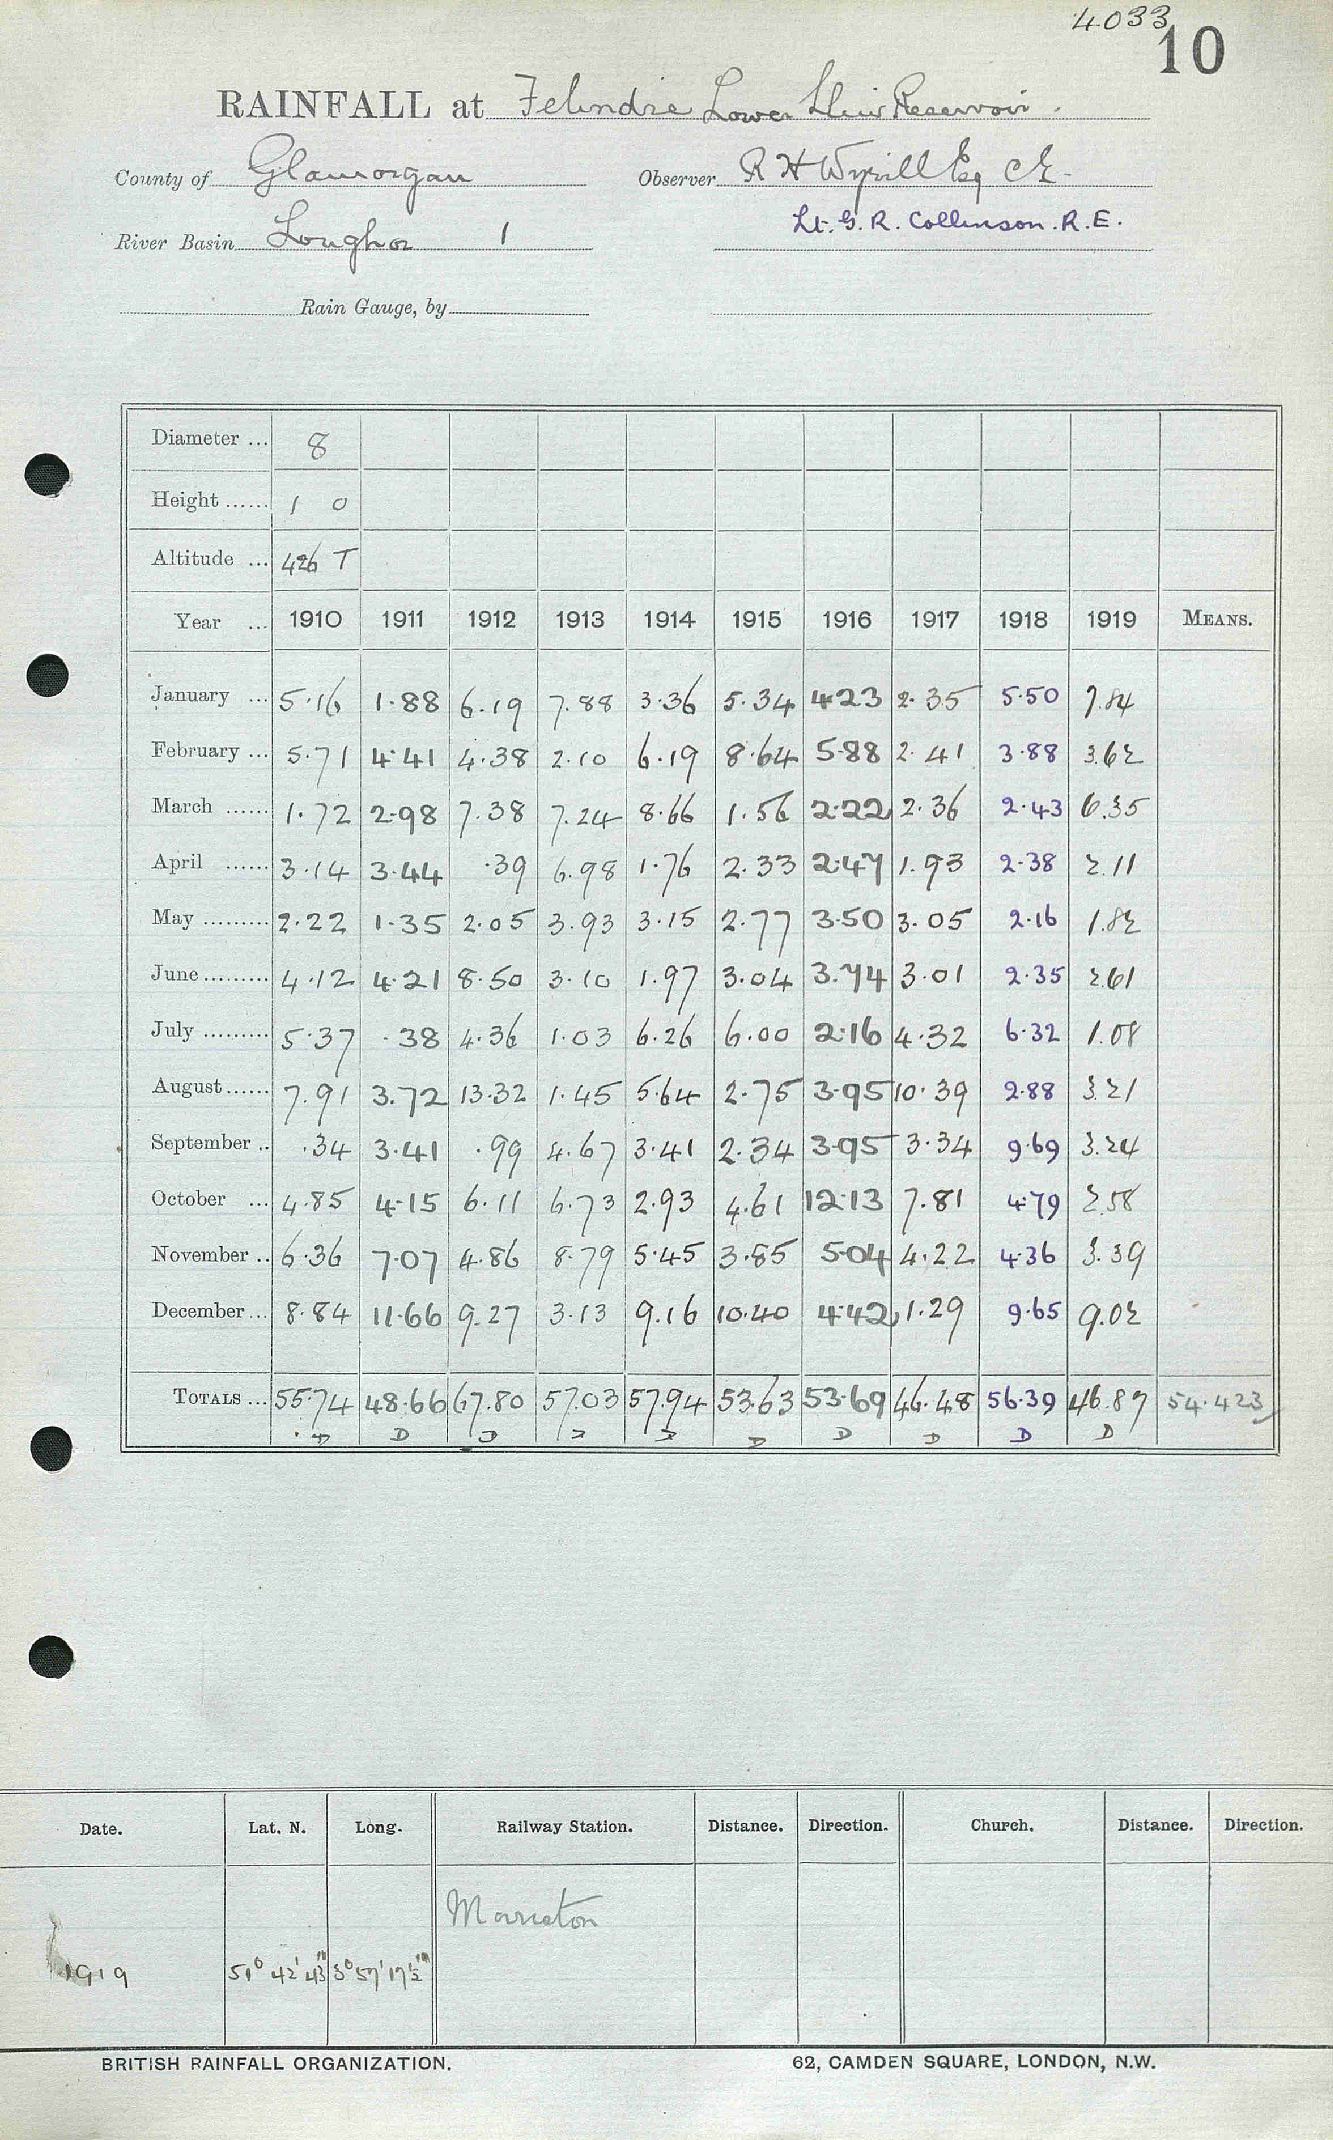 4033
10
RAINFALL at Felindre Lower Lliw Reservoir.
County of Glamorgan Observer R H Wyrill Esq CE
Lt. G. R. Collinson. R.E.
River Basin Loughor 1
Rain Gauge, by
Diameter ... 8
Height ...... 1 0
Altitude ... 426 T
Year ... 1910 1911 1912 1913 1914 1915 1916 1917 1918 1919 MEANS.
January ... 5.16 1.88 6.19 7.88 3.36 5.34 4.23 2.35 5.50 7.84
February ... 5.71 4.41 4.38 2.10 6.19 8.64 5.88 2.41 3.88 3.62
March ...... 1.72 2.98 7.38 7.24 8.66 1.56 2.22 2.36 2.43 6.35
April ...... 3.14 3.44 .39 6.98 1.76 2.33 2.47 1.93 2.38 2.11
May ......... 2.22 1.35 2.05 3.93 3.15 2.77 3.50 3.05 2.16 1.82
June ......... 4.12 4.21 8.50 3.10 1.97 3.04 3.74 3.01 2.35 2.61
July ......... 5.37 .38 4.36 1.03 6.26 6.00 2.16 4.32 6.32 1.08
August ...... 7.91 3.72 13.32 1.45 5.64 2.75 3.95 10.39 2.88 3.21
September .. .34 3.41 .99 4.67 3.41 2.34 3.95 3.34 9.69 3.24
October ... 4.85 4.15 6.11 6.73 2.93 4.61 12.13 7.81 4.79 2.58
November .. 6.36 7.07 4.86 8.79 5.45 3.85 5.04 4.22 4.36 3.39
December ... 8.84 11.66 9.27 3.13 9.16 10.40 4.42 1.29 9.65 9.02
TOTALS ... 55.74 48.66 67.80 57.03 57.94 53.63 53.69 46.48 56.39 46.87 54.423
D D D D D D D D D D
Date. Lat. N. Long. Railway Station. Distance. Direction. Church. Distance. Direction.
Morriston
1919 51° 42' 43" 3° 57' 17½"
BRITISH RAINFALL ORGANIZATION. 62, CAMDEN SQUARE, LONDON, N.W.